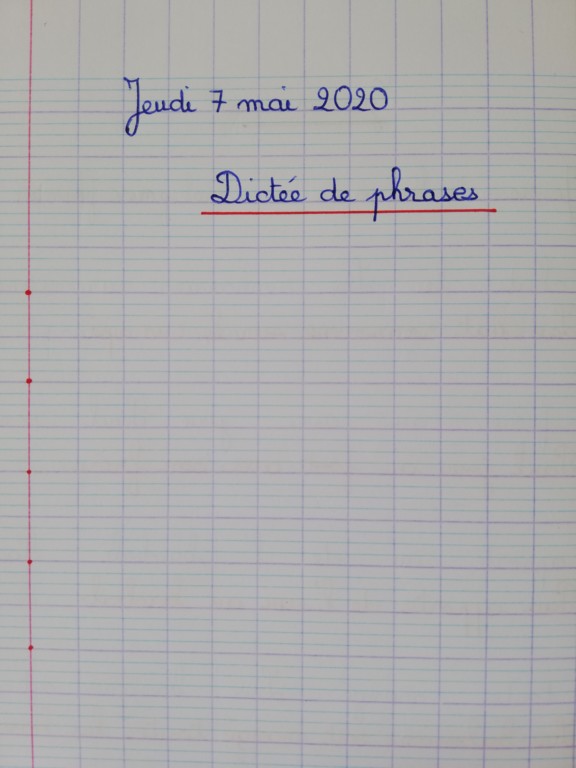 Jeudi 7 mai 2020
Dictée de phrases